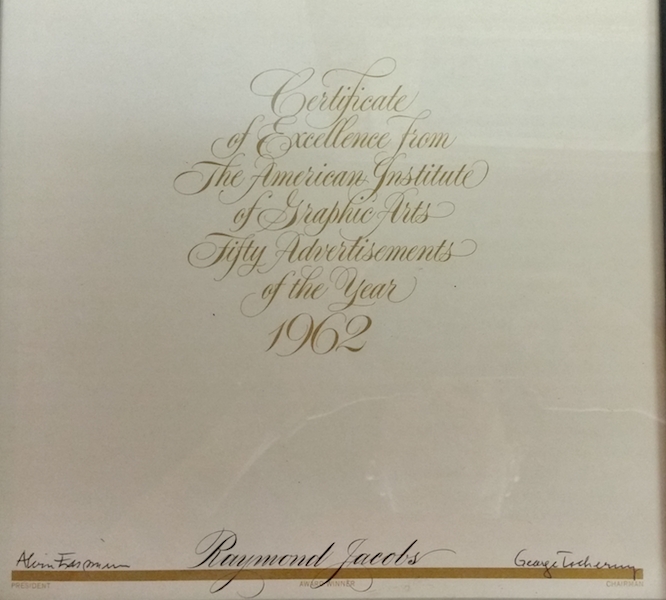 Certificate
of Excellence from
The American Institute
of Graphic Arts
Fifty Advertisements
of the Year
1962
Raymond Jacobs
George Tscherny
PRESIDENT
AWARD WINNER
CHAIRMAN